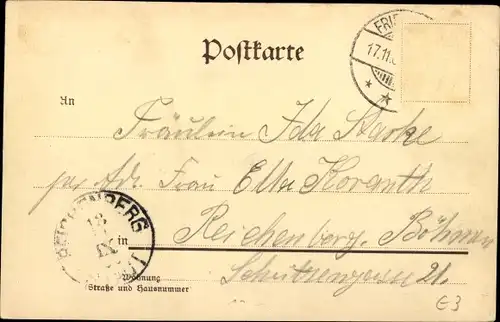 Postkarte
FRIE
17.11.
An
Fräulein Ida Starke
per Adr. Frau Ella Horanth
REICHENBERG
18
IX
in
Reichenberg. Böhmen
Schützengasse 21.
Wohnung
Straße und Hausnummer
E3